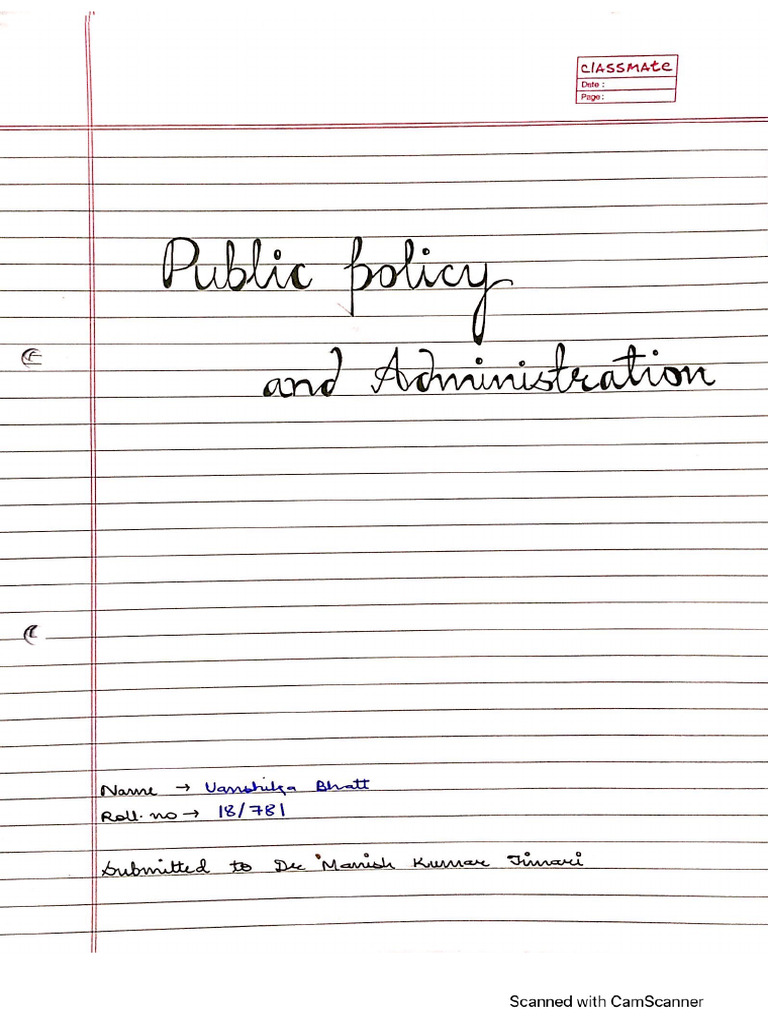 classmate
Date :
Page :
Public policy
and Administration
Name → Vanshika Bhatt
Roll. no → 18/781
Submitted to Dr Manish Kumar
Scanned with CamScanner